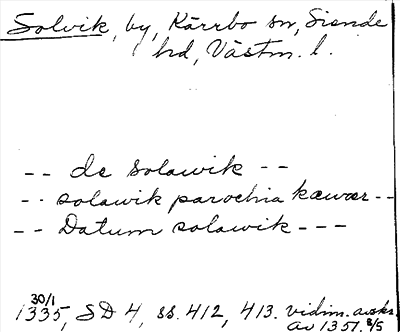 Solvik, by, Kärrbo sn, Siende
hd, Västm. l.
-- de solawik --
-- solawik parochia kæwær --
-- Datum solawik ---
30/1
1335, SD 4, ss. 412, 413. vidim. avskr.
av 1357. 8/5